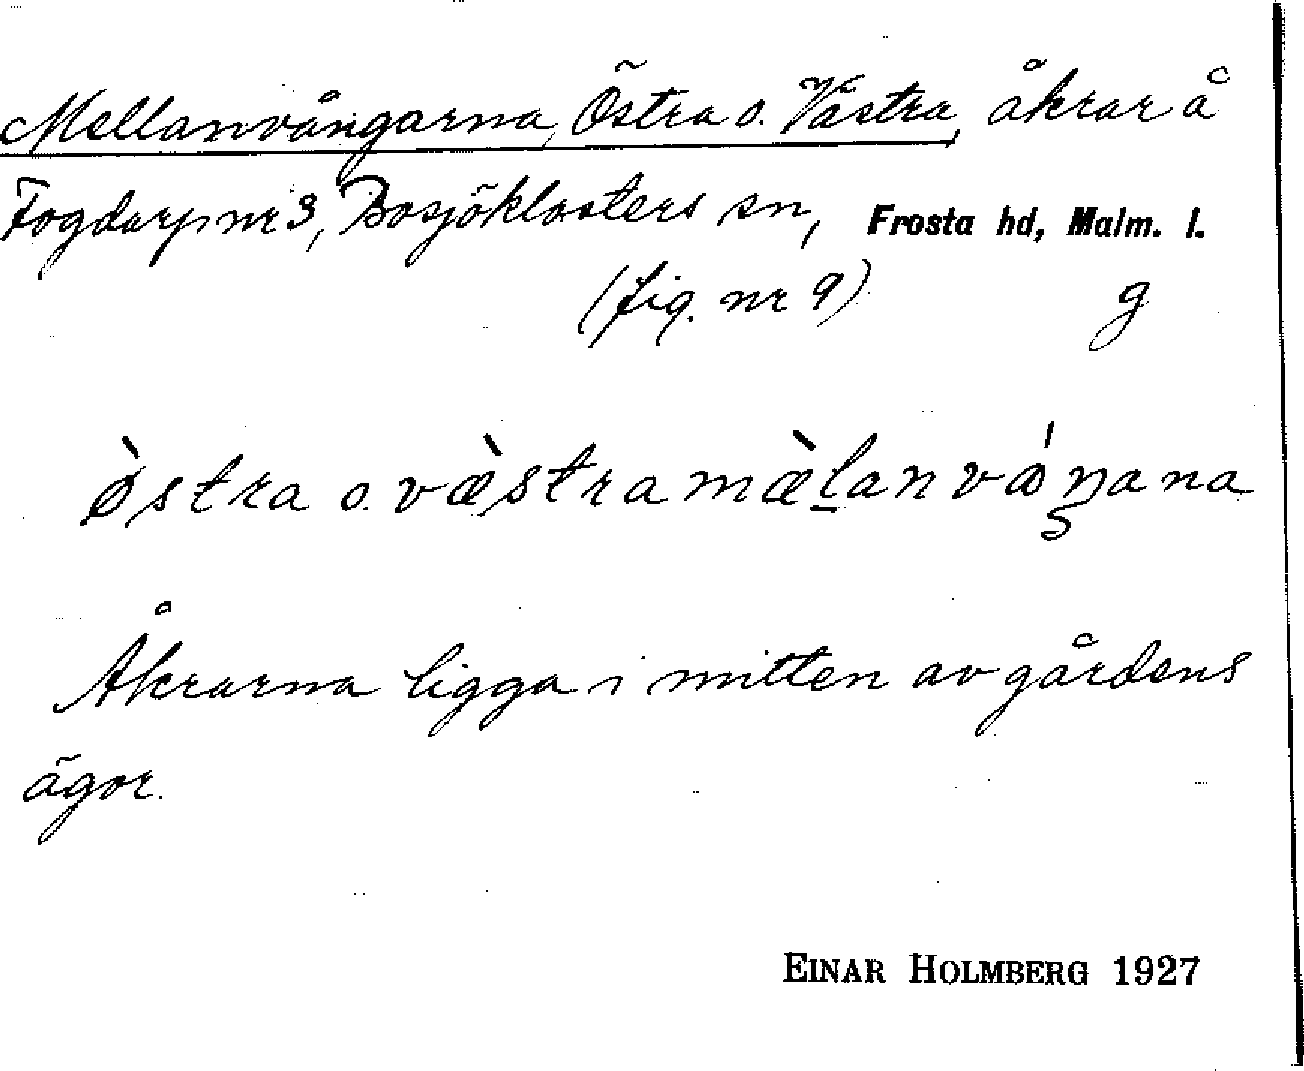 Mellanvångarna, Östra o. Västra, åkrar å
Fogdarp nr 3, Bosjöklosters sn, Frosta hd, Malm. l.
(fig. nr 9) g
ø̀stra o. væ̀stra mæ̀lanváŋana
Åkrarna ligga i mitten av gårdens
ägor.
EINAR HOLMBERG 1927